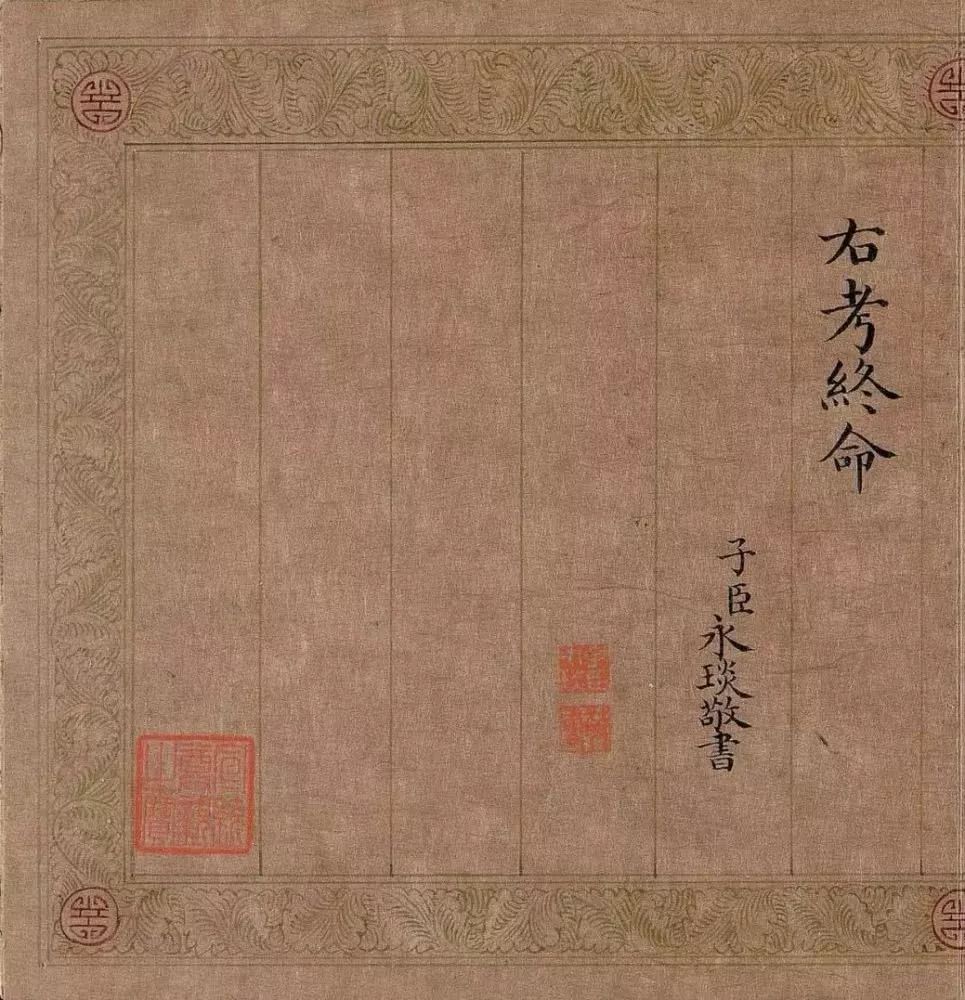 右考終命
子臣永琰敬書